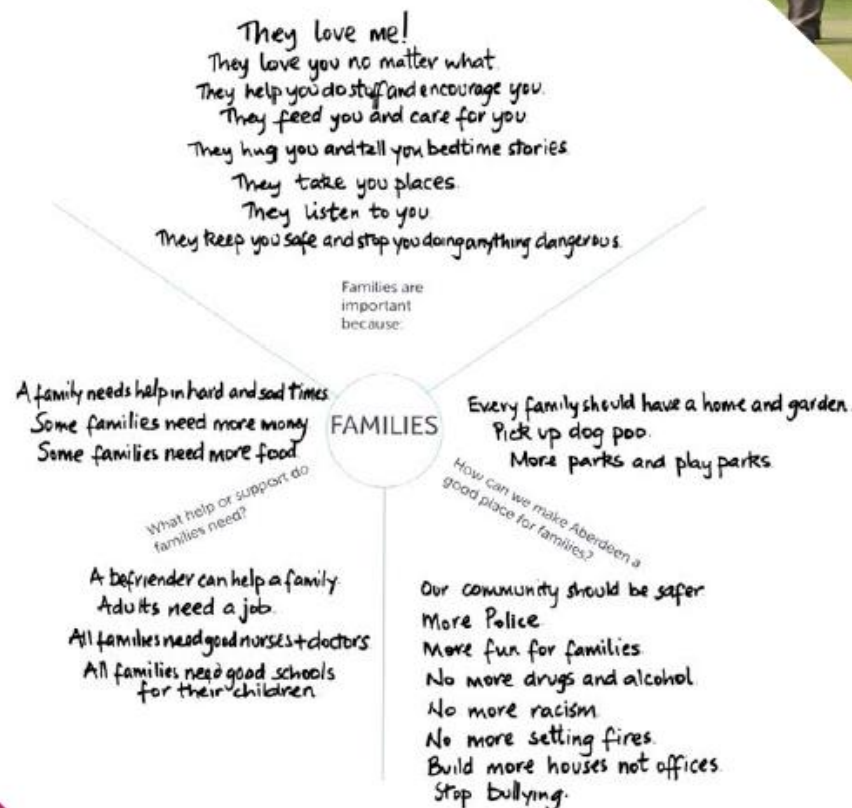 They love me!
They love you no matter what.
They help you do stuff and encourage you.
They feed you and care for you
They hug you and tell you bedtime stories.
They take you places.
They listen to you.
They keep you safe and stop you doing anything dangerous.
Families are
important
because:
FAMILIES
A family needs help in hard and sad times
Some families need more money
Some families need more food
What help or support do
families need?
A befriender can help a family.
Adults need a job.
All families need good nurses + doctors
All families need good schools
for their children
Every family should have a home and garden.
Pick up dog poo.
More parks and play parks.
How can we make Aberdeen a
good place for families?
Our community should be safer
More Police
More fun for families
No more drugs and alcohol.
No more racism
No more setting fires.
Build more houses not offices.
Stop bullying.